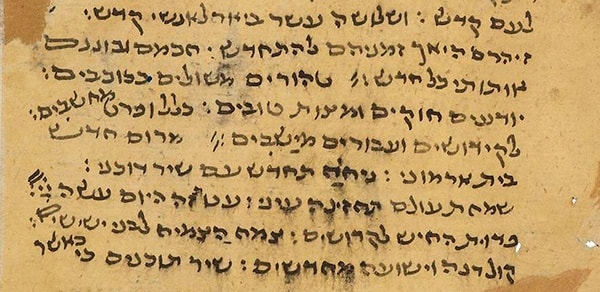 לעם קדש : ושלושה עשר ביאר לאנשי קדש :
זיהרם היאך זמניהם להתחדש : חכמם ובוננם
אותותי כל חדש :// טהורים משולים ככוכבים :
יודעים חוקים ומצות טובים : כללו ופרט מחשבים :
לקידושים ועבורים מישבים :// מרום חדש
בית ארמוני : ניחה תחדש עם שיר דוכני :
שמחת עולם תחזינה עיני : עטה היום עשה יי
פדות החיש לקדושים : צמח הצמיח לבני ישישי
קול רנה וישועה מחדשים : שיר תוכנים כי כאשר